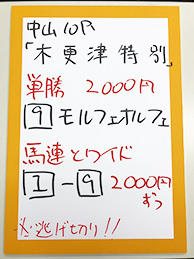 中山10R
「木更津特別」
単勝 2000円
9 モルフェオルフェ
馬連とワイド
1-9 2000円
ずつ
※逃げ切り!!